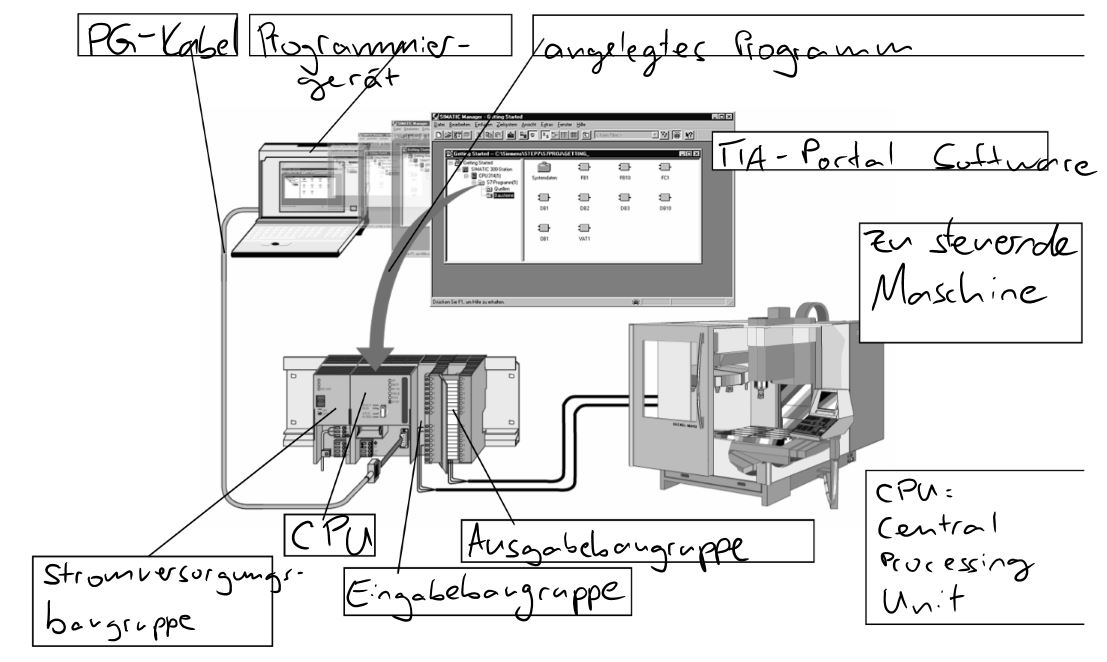 PG-Kabel
Programmier-
gerät
angelegtes Programm
SIMATIC Manager - Getting Started
Datei Bearbeiten Einfügen Zielsystem Ansicht Extras Fenster Hilfe
Getting Started -- C:\Siemens\STEP7\S7PROJ\GETTING_
Getting Started
SIMATIC 300-Station
CPU314(1)
S7-Programm(1)
Quellen
Bausteine
Systemdaten FB1 FB10 FC1
DB1 DB2 DB3 DB10
OB1 VAT1
Drücken Sie F1, um Hilfe zu erhalten.
TIA-Portal Software
Zu steuernde
Maschine
CPU
Ausgabebaugruppe
Stromversorgungs-
baugruppe
Eingabebaugruppe
CPU:
Central
Processing
Unit